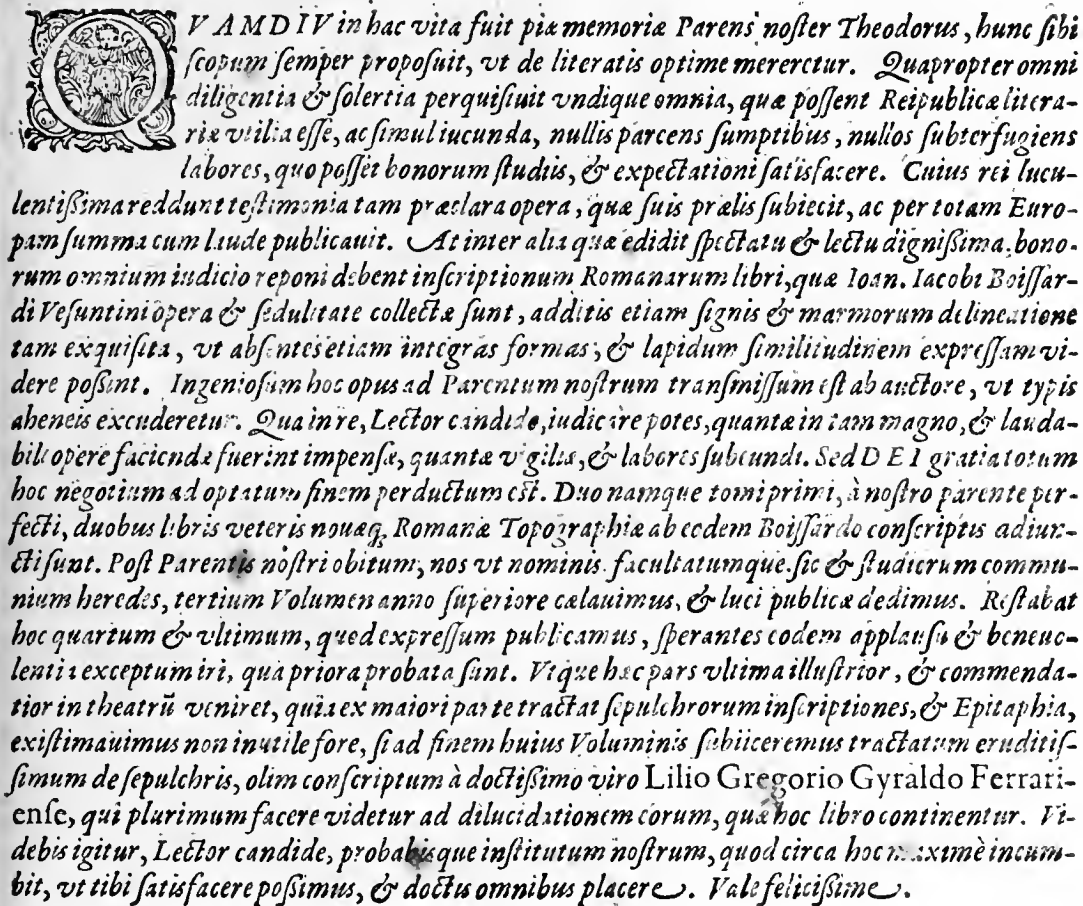 QVAMDIV in hac vita fuit piæ memoriæ Parens noſter Theodorus, hunc ſibi
ſcopum ſemper propoſuit, vt de literatis optime mereretur. Quapropter omni
diligentia & ſolertia perquiſiuit vndique omnia, quæ poſſent Reipublicæ litera-
riæ vtilia eſſe, ac ſimul iucunda, nullis parcens ſumptibus, nullos ſubterfugiens
labores, quo poſſet bonorum ſtudiis, & expectationi ſatisfacere. Cuius rei lucu-
lentißima reddunt teſtimonia tam præclara opera, quæ ſuis prælis ſubiecit, ac per totam Euro-
pam ſumma cum laude publicauit. At inter alia quæ edidit ſpectatu & lectu digniſſima, bono-
rum omnium iudicio reponi debent inſcriptionum Romanarum libri, quæ Ioan. Iacobi Boiſſar-
di Veſuntini opera & ſedulitate collectæ ſunt, additis etiam ſignis & marmorum delineatione
tam exquiſita, vt abſentes etiam integras formas, & lapidum ſimilitudinem expreſſam vi-
dere poßint. Ingenioſum hoc opus ad Parentum noſtrum tranſmiſſum eſt ab auctore, vt typis
aheneis excuderetur. Qua in re, Lector candide, iudicare potes, quantæ in tam magno, & lauda-
bili opere faciendæ fuerint impenſæ, quantæ vigiliæ, & labores ſubeundi. Sed DEI gratia totum
hoc negotium ad optatum finem perductum eſt. Duo namque tomi primi, à noſtro parente per-
fecti, duobus libris veteris nouæq́; Romanæ Topographiæ ab eodem Boiſſardo conſcriptis adiun-
cti ſunt. Poſt Parentis noſtri obitum, nos vt nominis facultatumque ſic & ſtudiorum commu-
nium heredes, tertium Volumen anno ſuperiore cælauimus, & luci publicæ dedimus. Reſtabat
hoc quartum & vltimum, quod expreſſum publicamus, ſperantes eodem applauſu & beneuo-
lentia exceptum iri, qua priora probata ſunt. Vtque hæc pars vltima illuſtrior, & commenda-
tior in theatrũ veniret, quia ex maiori parte tractat ſepulchrorum inſcriptiones, & Epitaphia,
exiſtimauimus non inutile fore, ſi ad finem huius Voluminis ſubiiceremus tractatum eruditiſ-
ſimum de ſepulchris, olim conſcriptum à doctißimo viro Lilio Gregorio Gyraldo Ferrari-
enſe, qui plurimum facere videtur ad dilucidationem eorum, quæ hoc libro continentur. Vi-
debis igitur, Lector candide, probabisque inſtitutum noſtrum, quod circa hoc maximè incum-
bit, vt tibi ſatisfacere poßimus, & doctis omnibus placere. Vale felicißime.